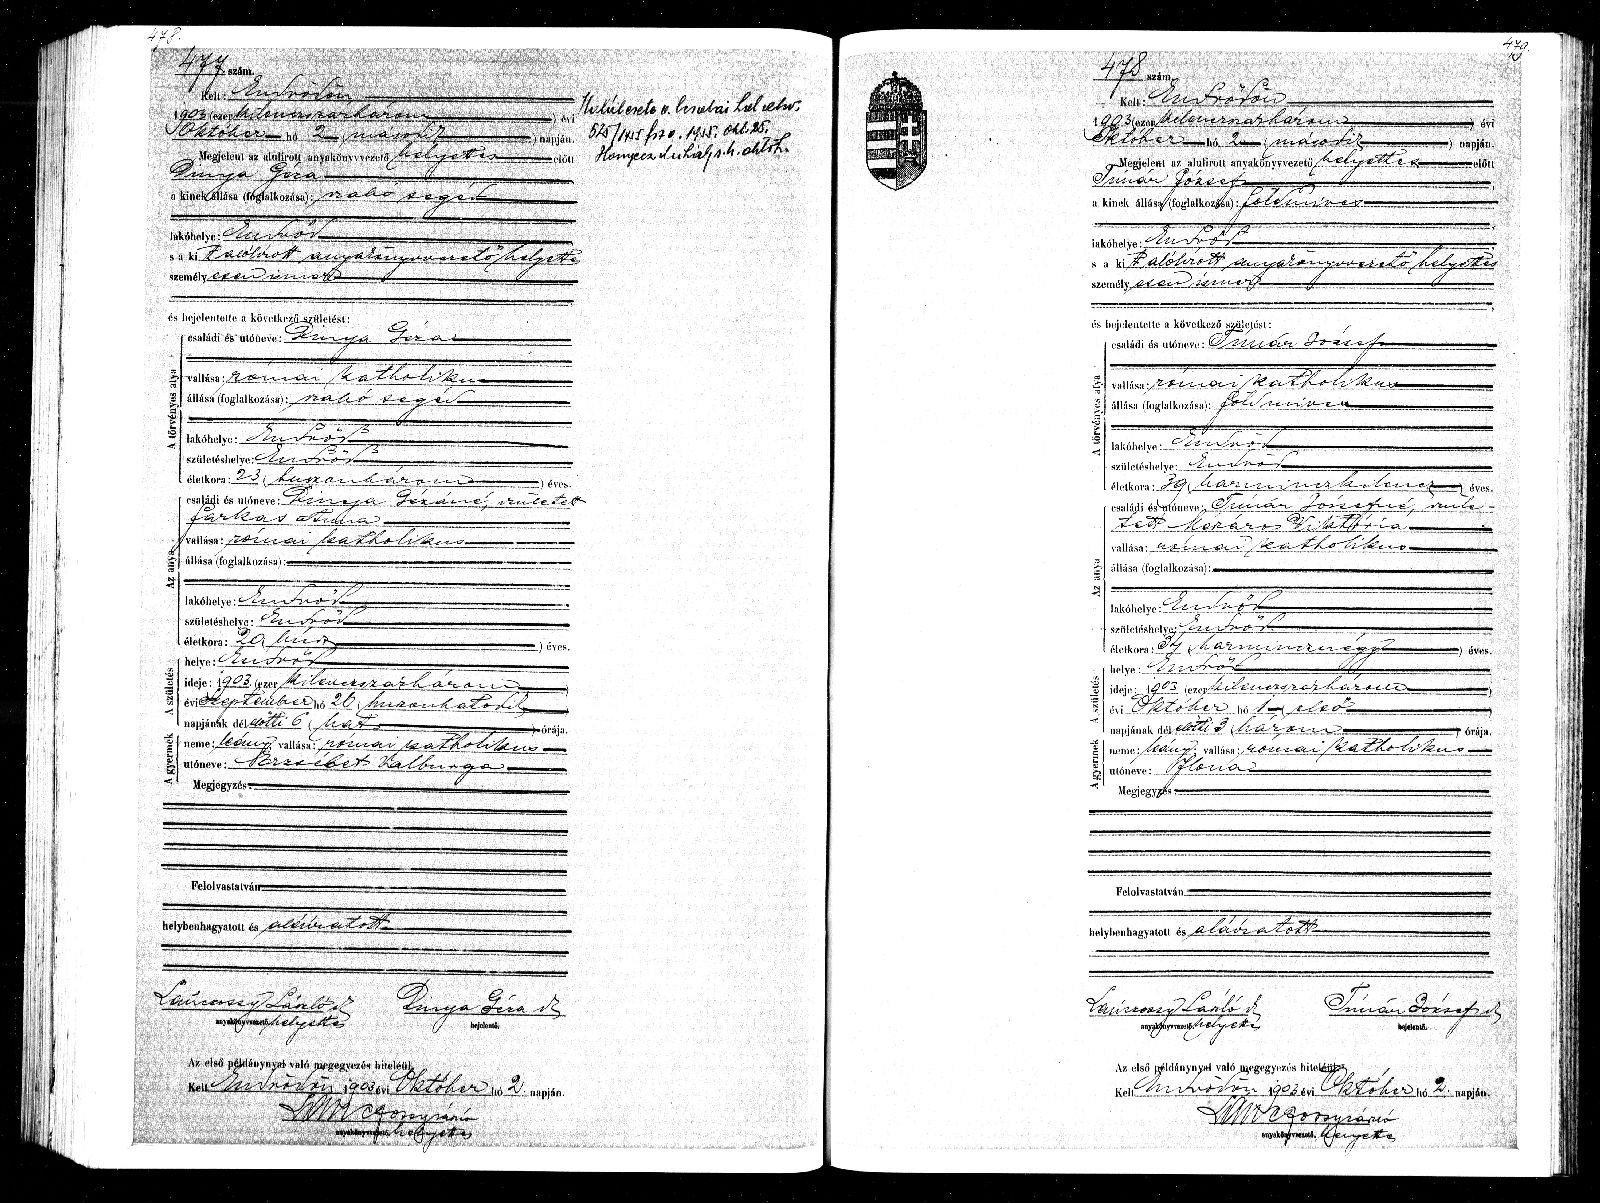 478.
477 szám.
Kelt: Endrődön
1903 (ezer kilenczszázhárom) évi
Október hó 2 (második) napján.
Megjelent az alulirott anyakönyvvezető helyettes előtt
Dinya Géza
a kinek állása (foglalkozása): szabó segéd
lakóhelye: Endrőd
s a ki t alólirott anyakönyvvezető helyettes
személyesen ismer
és bejelentette a következő születést:
A törvényes atya
családi és utóneve: Dinya Géza
vallása: római katholikus
állása (foglalkozása): szabó segéd
lakóhelye: Endrőd
születéshelye: Endrőd
életkora: 23 (huszonhárom) éves.
Az anya
családi és utóneve: Dinya Gézáné, született
Farkas Anna
vallása: római katholikus
állása (foglalkozása):
lakóhelye: Endrőd
születéshelye: Endrőd
életkora: 20 (húsz) éves.
A születés
helye: Endrőd
ideje: 1903 (ezer kilenczszázhárom)
évi Szeptember hó 26 (huszonhatodik)
napjának dél előtti 6 (hat) órája.
A gyermek
neme: leány, vallása: római katholikus
utóneve: Erzsébet Valburga
Megjegyzés:
Felolvastatván
helybenhagyatott és aláiratott
Dinya Géza
anyakönyvvezető helyettes
bejelentő.
Az első példánynyal való megegyezés hiteléül.
Kelt Endrődön 1903 évi Október hó 2. napján.
anyakönyvvezető. helyettes
Halálesete a
1955. okt. 25.
479.
478 szám.
Kelt: Endrődön
1903 (ezer kilenczszázhárom) évi
Október hó 2 (második) napján.
Megjelent az alulirott anyakönyvvezető helyettes előtt
Timár József
a kinek állása (foglalkozása): földmives
lakóhelye: Endrőd
s a ki t alólirott anyakönyvvezető helyettes
személyesen ismer
és bejelentette a következő születést:
A törvényes atya
családi és utóneve: Timár József
vallása: római katholikus
állása (foglalkozása): földmives
lakóhelye: Endrőd
születéshelye: Endrőd
életkora: 39 (harminczkilencz) éves.
Az anya
családi és utóneve: Timár Józsefné, szüle-
tett Mészáros Viktória
vallása: római katholikus
állása (foglalkozása):
lakóhelye: Endrőd
születéshelye: Endrőd
életkora: 34 (harmincznégy) éves.
A születés
helye: Endrőd
ideje: 1903 (ezer kilenczszázhárom)
évi Október hó 1 (első)
napjának dél előtti 3 (három) órája.
A gyermek
neme: leány, vallása: római katholikus
utóneve: Ilona
Megjegyzés:
Felolvastatván
helybenhagyatott és aláiratott
Timár József
anyakönyvvezető. helyettes
bejelentő.
Az első példánynyal való megegyezés hiteléül.
Kelt Endrődön 1903 évi Október hó 2. napján.
anyakönyvvezető. helyettes